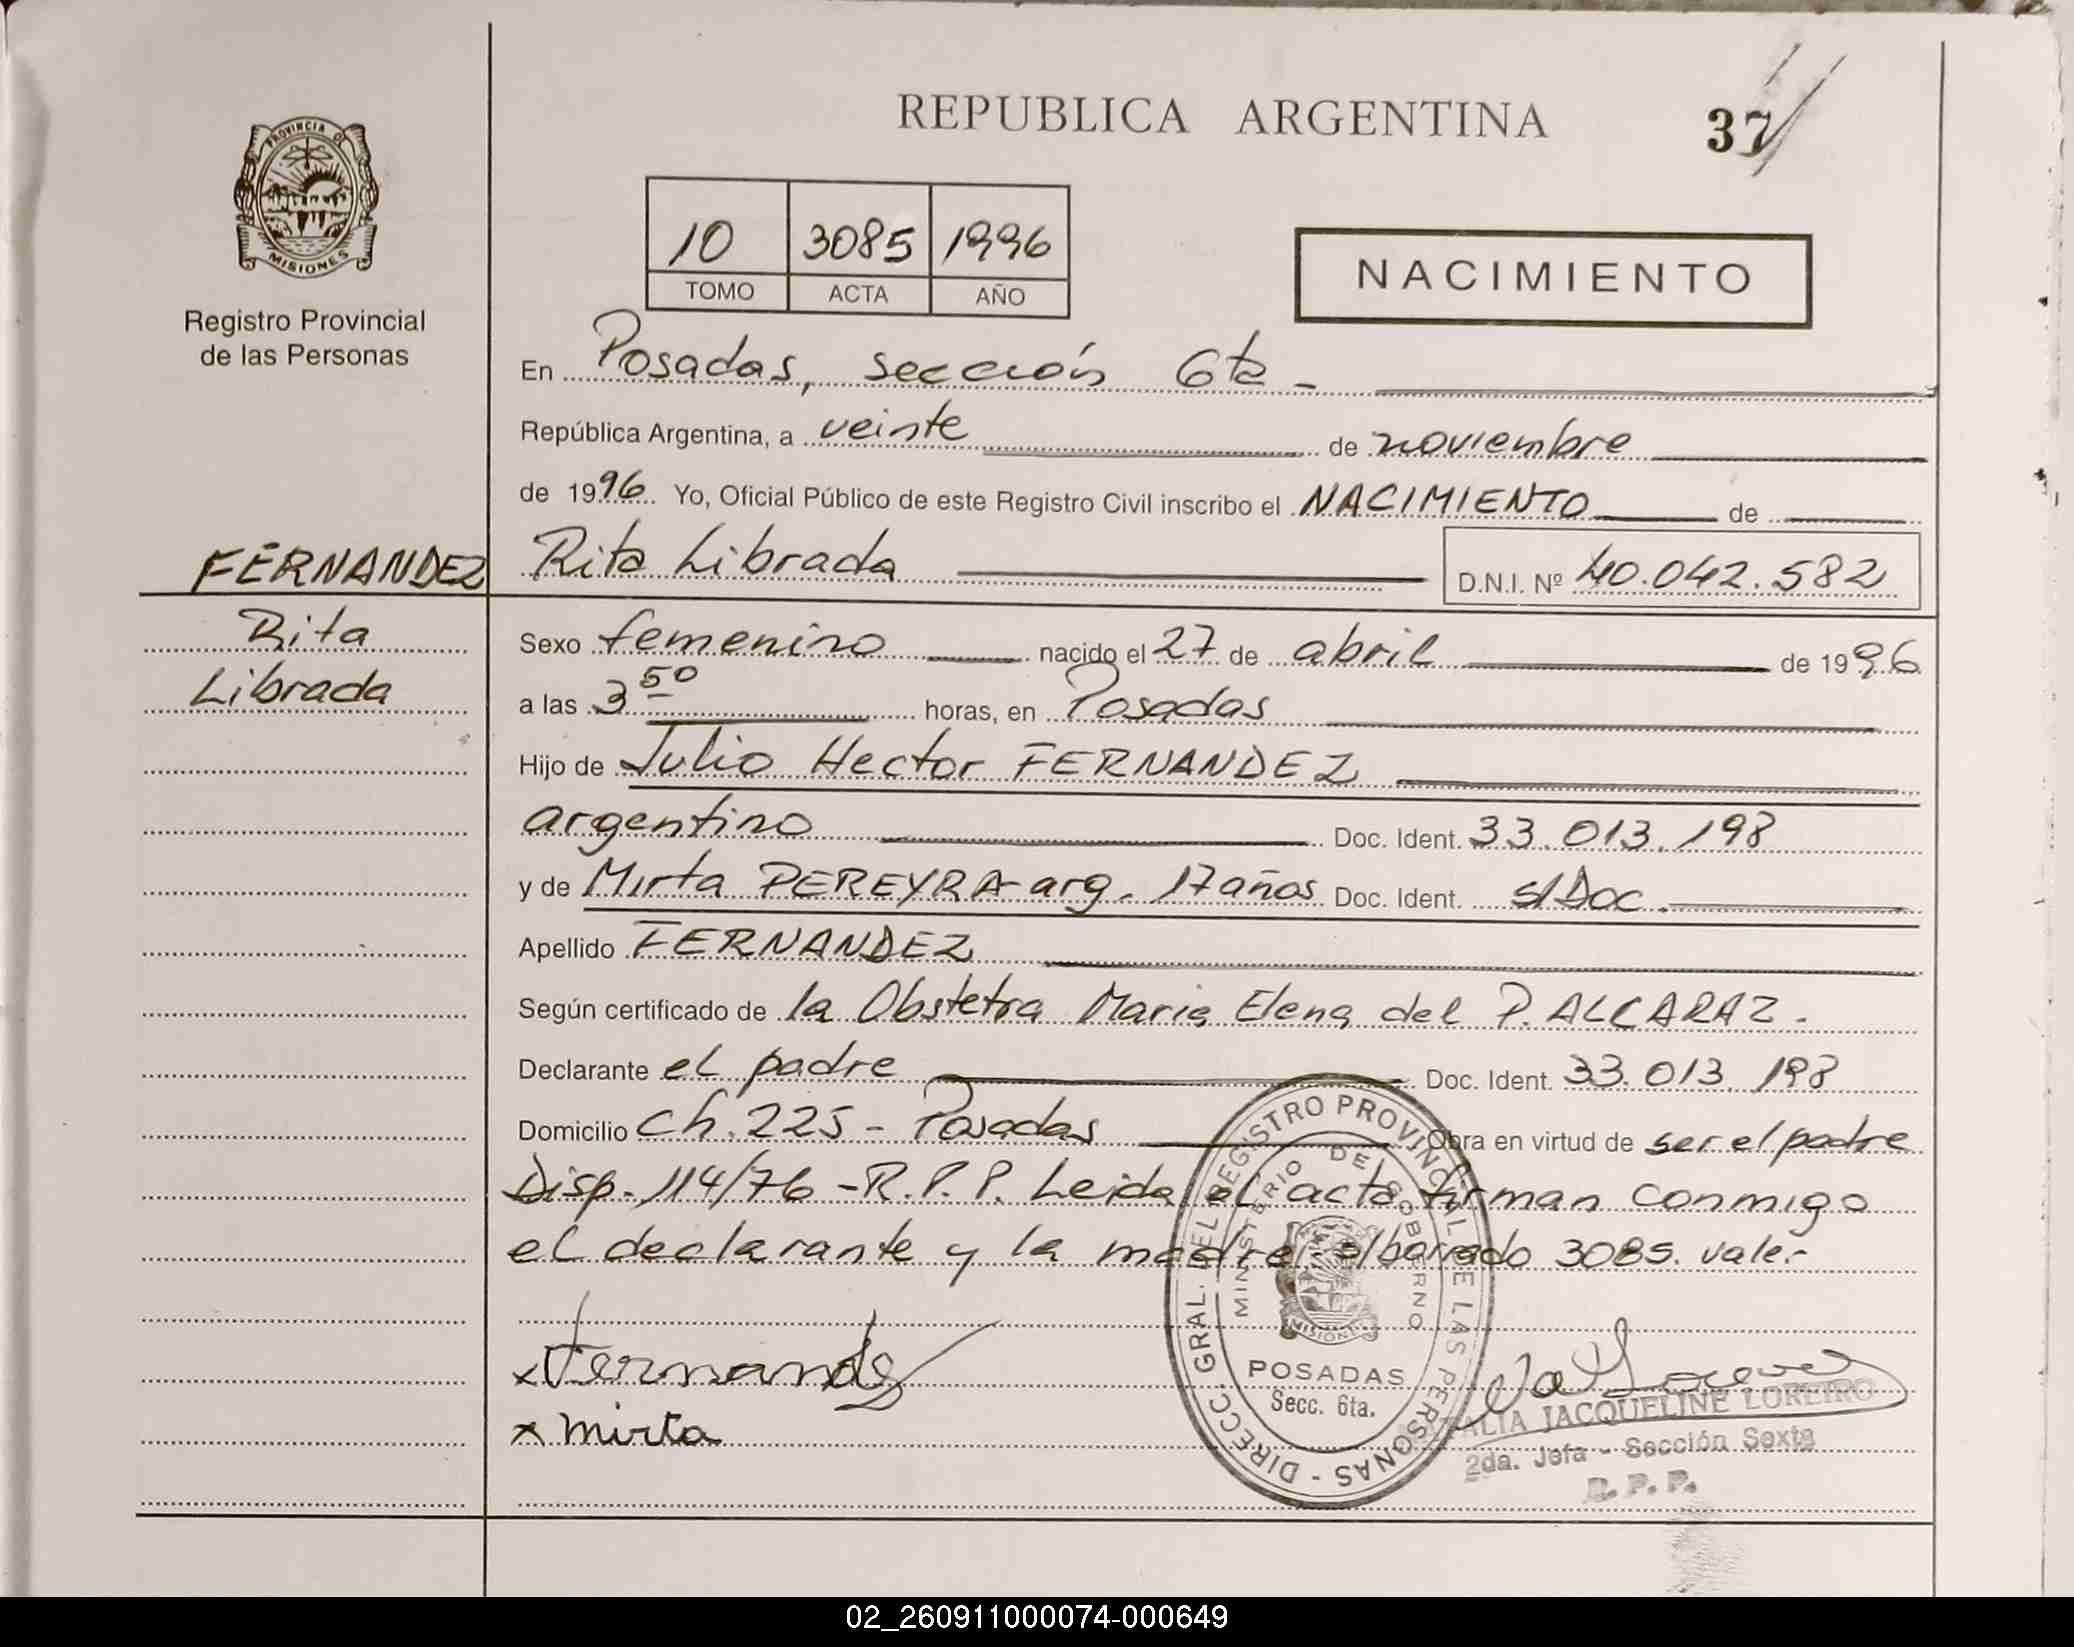 REPUBLICA ARGENTINA
37
PROVINCIA DE
MISIONES
Registro Provincial
de las Personas
10 3085 1996
TOMO ACTA AÑO
NACIMIENTO
En Posadas, sección 6ta -
República Argentina, a veinte de noviembre
de 1996 Yo, Oficial Público de este Registro Civil inscribo el NACIMIENTO de
FERNANDEZ
Rita
Librada
Rita Librada D.N.I. Nº 40.042.582
Sexo femenino nacido el 27 de abril de 1996
a las 3 50 horas, en Posadas
Hijo de Julio Hector FERNANDEZ
argentino Doc. Ident. 33.013.198
y de Mirta PEREYRA-arg. 17 años Doc. Ident. s/Doc.
Apellido FERNANDEZ
Según certificado de la Obstetra Maria Elena del P. ALCARAZ.
Declarante el padre Doc. Ident. 33.013.198
Domicilio Ch. 225 - Posadas Obra en virtud de ser el padre
Disp. 114/76 - R.P.P. Leida el acta firman conmigo
el declarante y la madre s/borrado 3085. vale.-
x Fernandez
x mirta
DIRECC. GRAL. DEL REGISTRO PROVINCIAL DE LAS PERSONAS -
MINISTERIO DE GOBIERNO
MISIONES
POSADAS
Secc. 6ta.
NATALIA JACQUELINE LOREIRO
2da. Jefa - Sección Sexta
R. P. P.
02_260911000074-000649